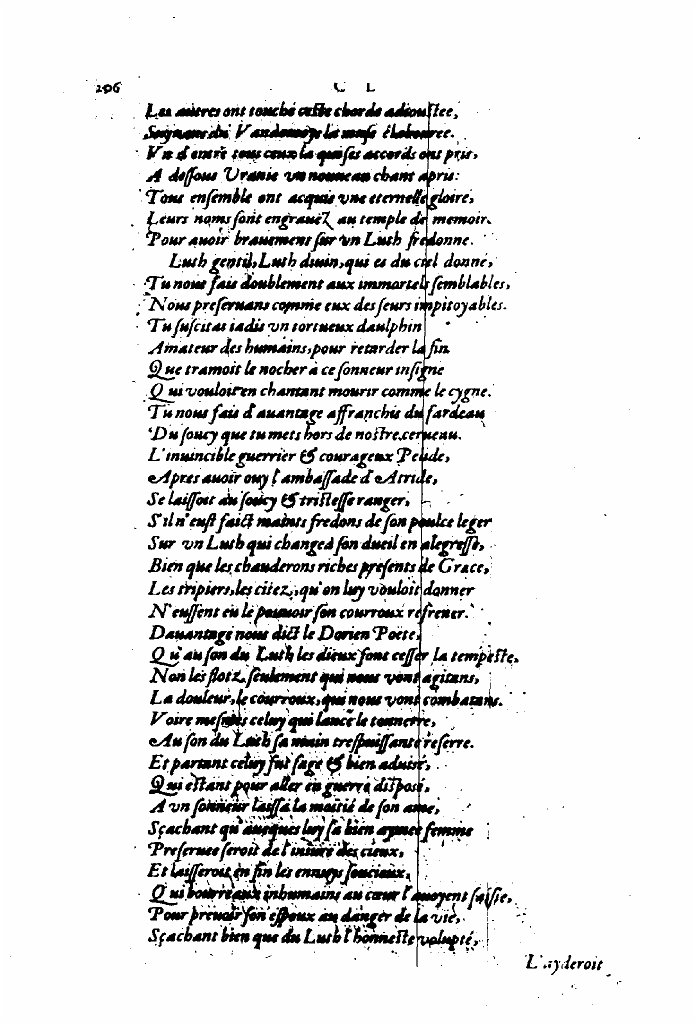 296 C L
Les autres ont touché ceste chorde adioustee,
Soignans du Vandomoys la muse élabouree.
Vn d'entre tous ceux la qui ses accords ont pris,
A dessous Vranie vn nouueau chant apris:
Tous ensemble ont acquis vne eternelle gloire,
Leurs noms sont engrauez au temple de memoir.
Pour auoir brauement sur vn Luth fredonne.
Luth gentil, Luth diuin, qui es du ciel donné,
Tu nous fais doublement aux immortels semblables,
Nous preseruans comme eux des seurs impitoyables.
Tu suscitas iadis vn tortueux daulphin
Amateur des humains, pour retarder la fin
Que tramoit le nocher à ce sonneur insigne
Qui vouloit en chantant mourir comme le cygne.
Tu nous fais d'auantage affranchis du fardeau
Du soucy que tu mets hors de nostre cerueau.
L'inuincible guerrier & courageux Pelide,
Apres auoir ouy l'ambassade d'Atride,
Se laissoit au soucy & tristesse ranger,
S'il n'eust faict maints fredons de son poulce leger
Sur vn Luth qui changea son dueil en alegresse,
Bien que les chauderons riches presents de Grace,
Les tripiers, les citez, qu'on luy vouloit donner
N'eussent eu le pouuoir son courroux refrener.
Dauantage nous dict le Dorien Poëte,
Qu'au son du Luth les dieux font cesser la tempeste,
Non les flotz seulement qui nous vont agitans,
La douleur, le courroux, qui nous vont combatans.
Voire mesmes celuy qui lance le tonnerre,
Au son du Luth sa main trespuissante reserre.
Et partant celuy fut sage & bien aduisé,
Qui estant pour aller en guerre disposé,
A vn sonneur laissa la moitié de son ame,
Sçachant qu'auecques luy sa bien aymee femme
Preseruee seroit de l'iniure des cieux,
Et laisseroit en fin les ennuys soucieux,
Qui bourreaux inhumains au cœur l'auoyent saisie,
Pour preuoir son espoux au danger de la vie,
Sçachant bien que du Luth l'honneste volupté,
L'ayderoit